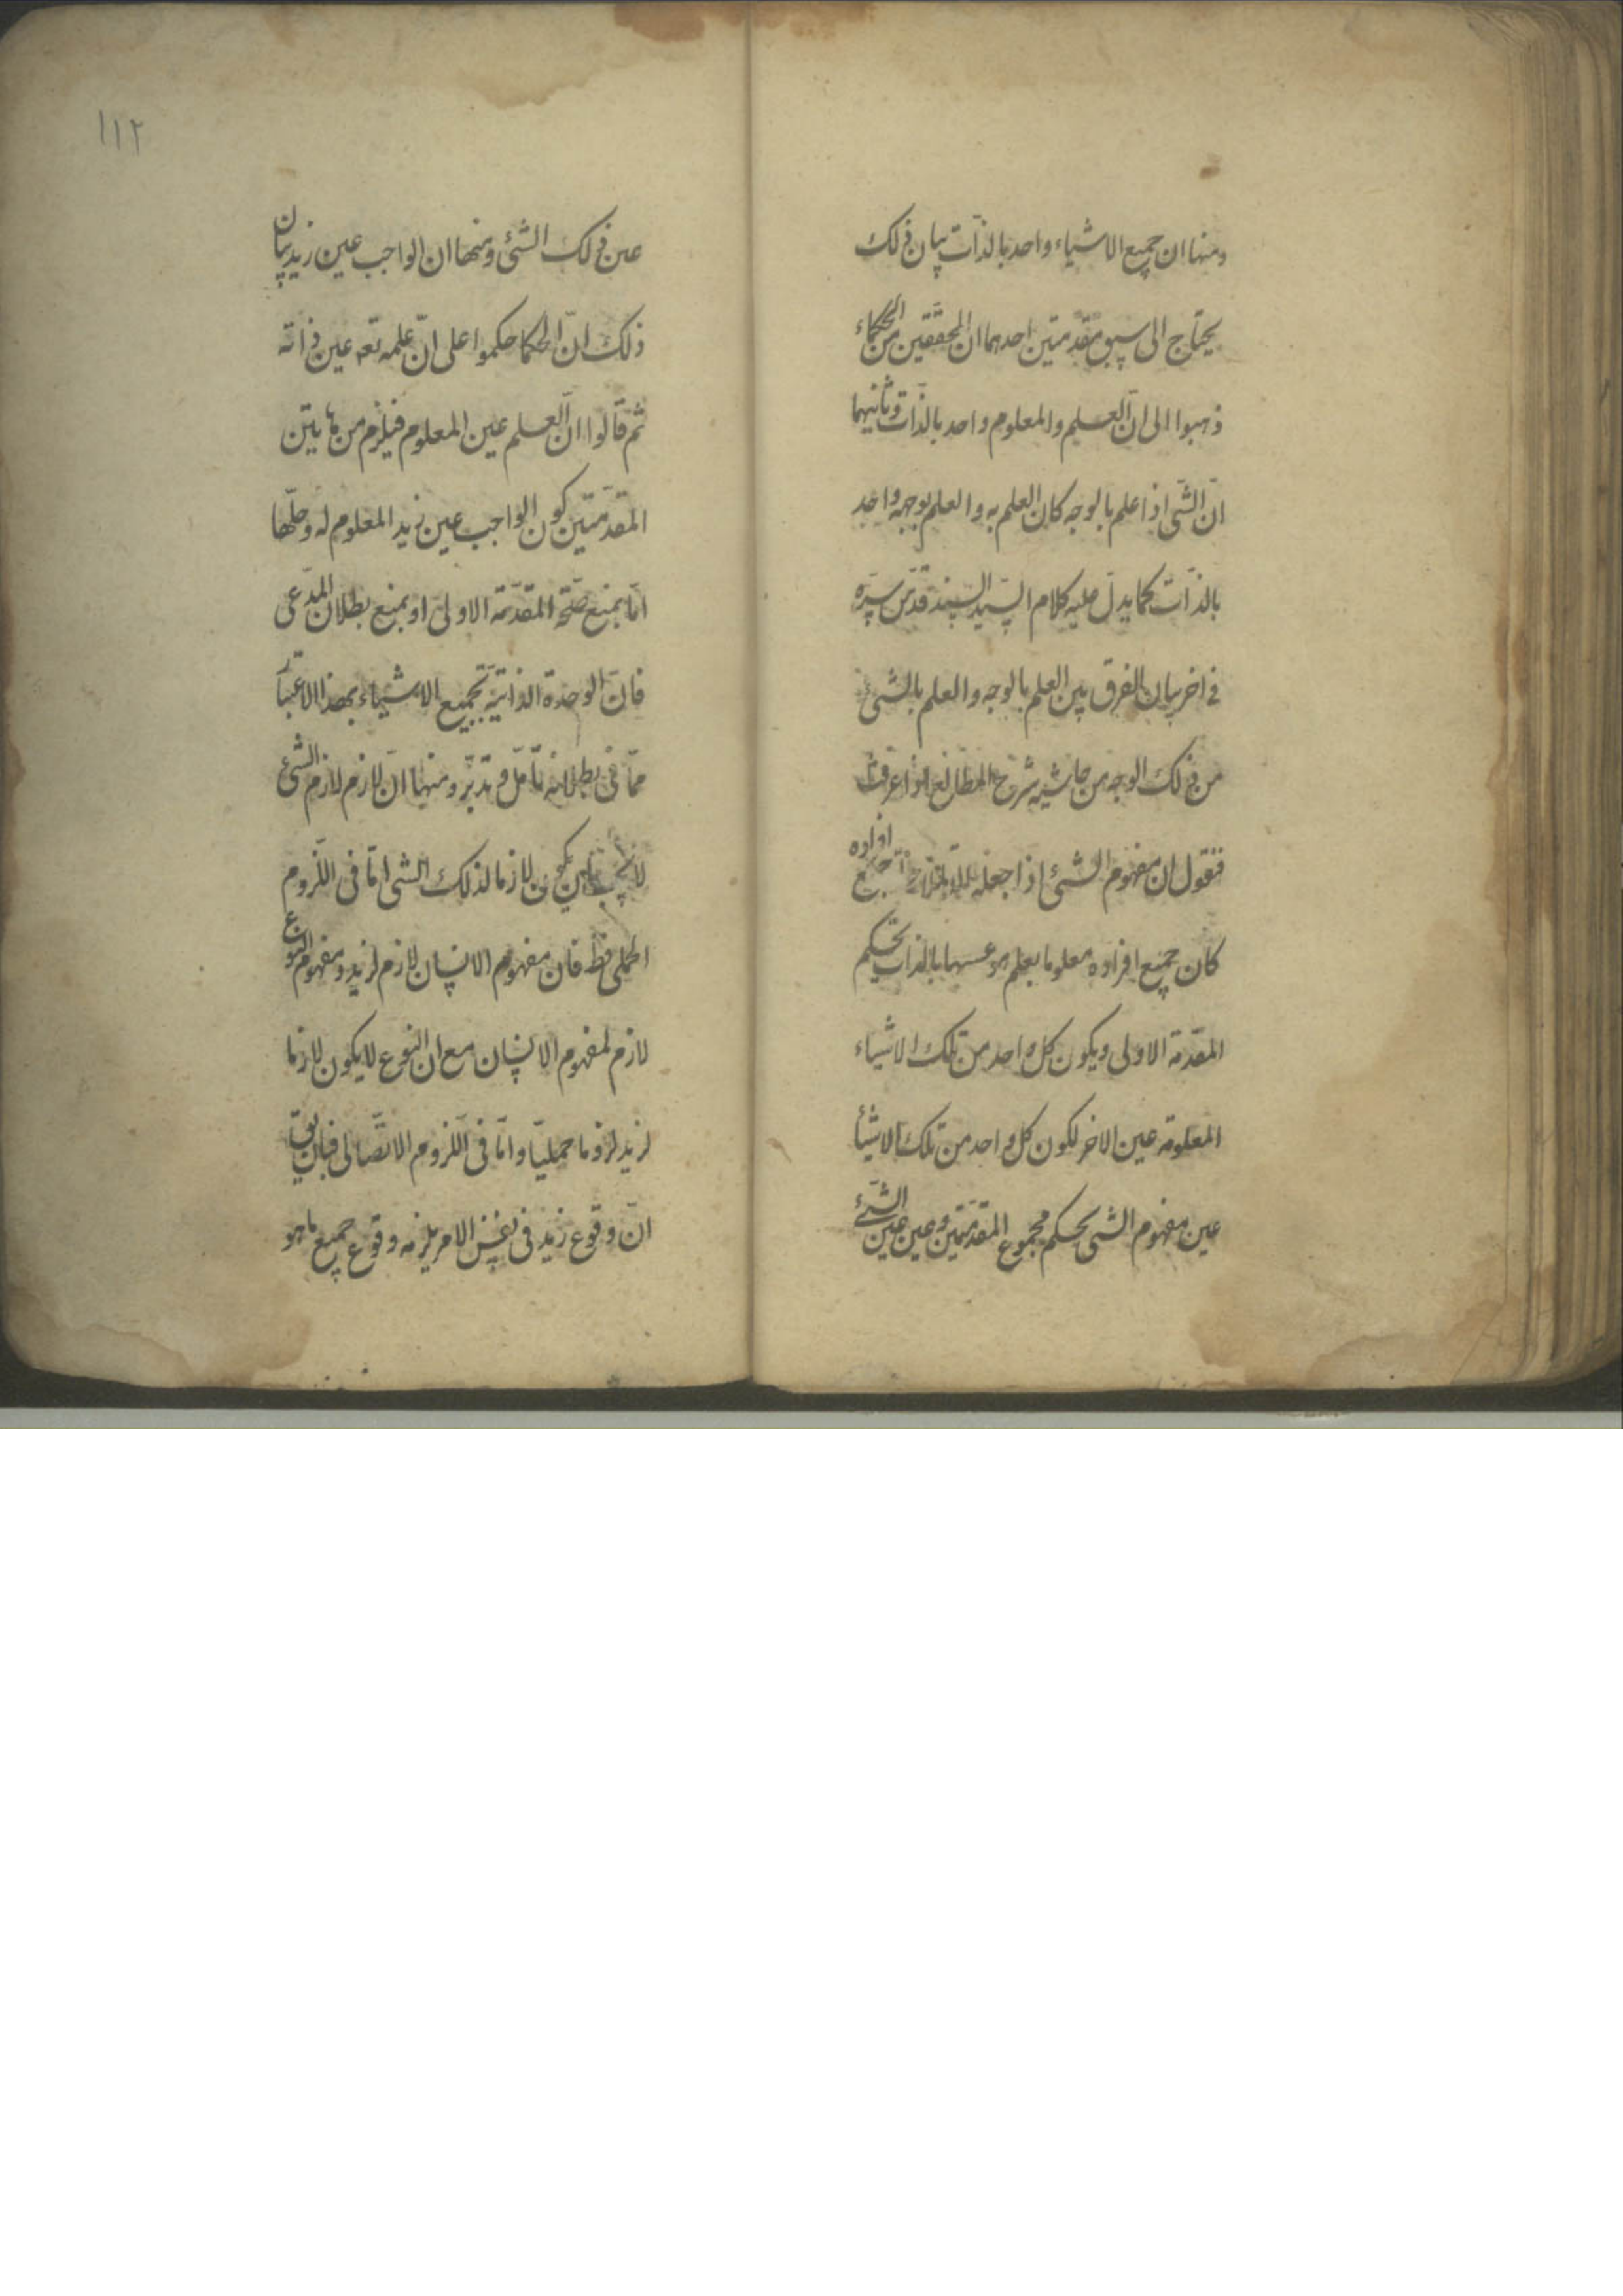 ومنها ان جميع الاشياء واحد بالذات بيان ذلك
يحتاج الى سبق مقدمتين احدهما ان المحققين من الحكماء
ذهبوا الى ان العلم والمعلوم واحد بالذات وثانيهما
ان الشئ اذا علم بالوجه كان العلم به والعلم بوجهه واحد
بالذات كما يدل عليه كلام السيد السند قدس سره
فى اخر بيان الفرق بين العلم بالوجه والعلم بالشئ
من ذلك الوجه من حاشية شرح المطالع اذا عرفت
فنقول ان مفهوم الشئ اذا جعل جميع افراده
كان جميع افراده معلوما بعلم هو عينها بالذات بحكم
المقدمة الاولى ويكون كل واحد من تلك الاشياء
المعلومة عين الاخر لكون كل واحد من تلك الاشيأ
عين مفهوم الشئ بحكم مجموع المقدمتين وعين عين الشئ
١١٢
عين ذلك الشئ ومنها ان الواجب عين زيد بيان
ذلك ان الحكما حكموا على ان علمه تعه عين ذاته
ثم قالوا ان العلم عين المعلوم فيلزم من هاتين
المقدمتين كون الواجب عين زيد المعلوم له وحلها
اما بمنع صحة المقدمة الاولى او بمنع بطلان المدعى
فان الوحدة الذاتية لجميع الاشياء بهذا الاعتبار
مما فى بطلانه تامل وتدبر ومنها ان لازم لازم الشئ
لا يجب ان يكون لازما لذلك الشئ اما فى اللزوم
الحملى فظ فان مفهوم الانسان لازم لزيد ومفهوم النوع
لازم لمفهوم الانسان مع ان النوع لا يكون لازما
لزيد لزوما حمليا واما فى اللزوم الاتصالى فبان يق
ان وقوع زيد فى نفس الامر يلزمه وقوع جميع ما هو